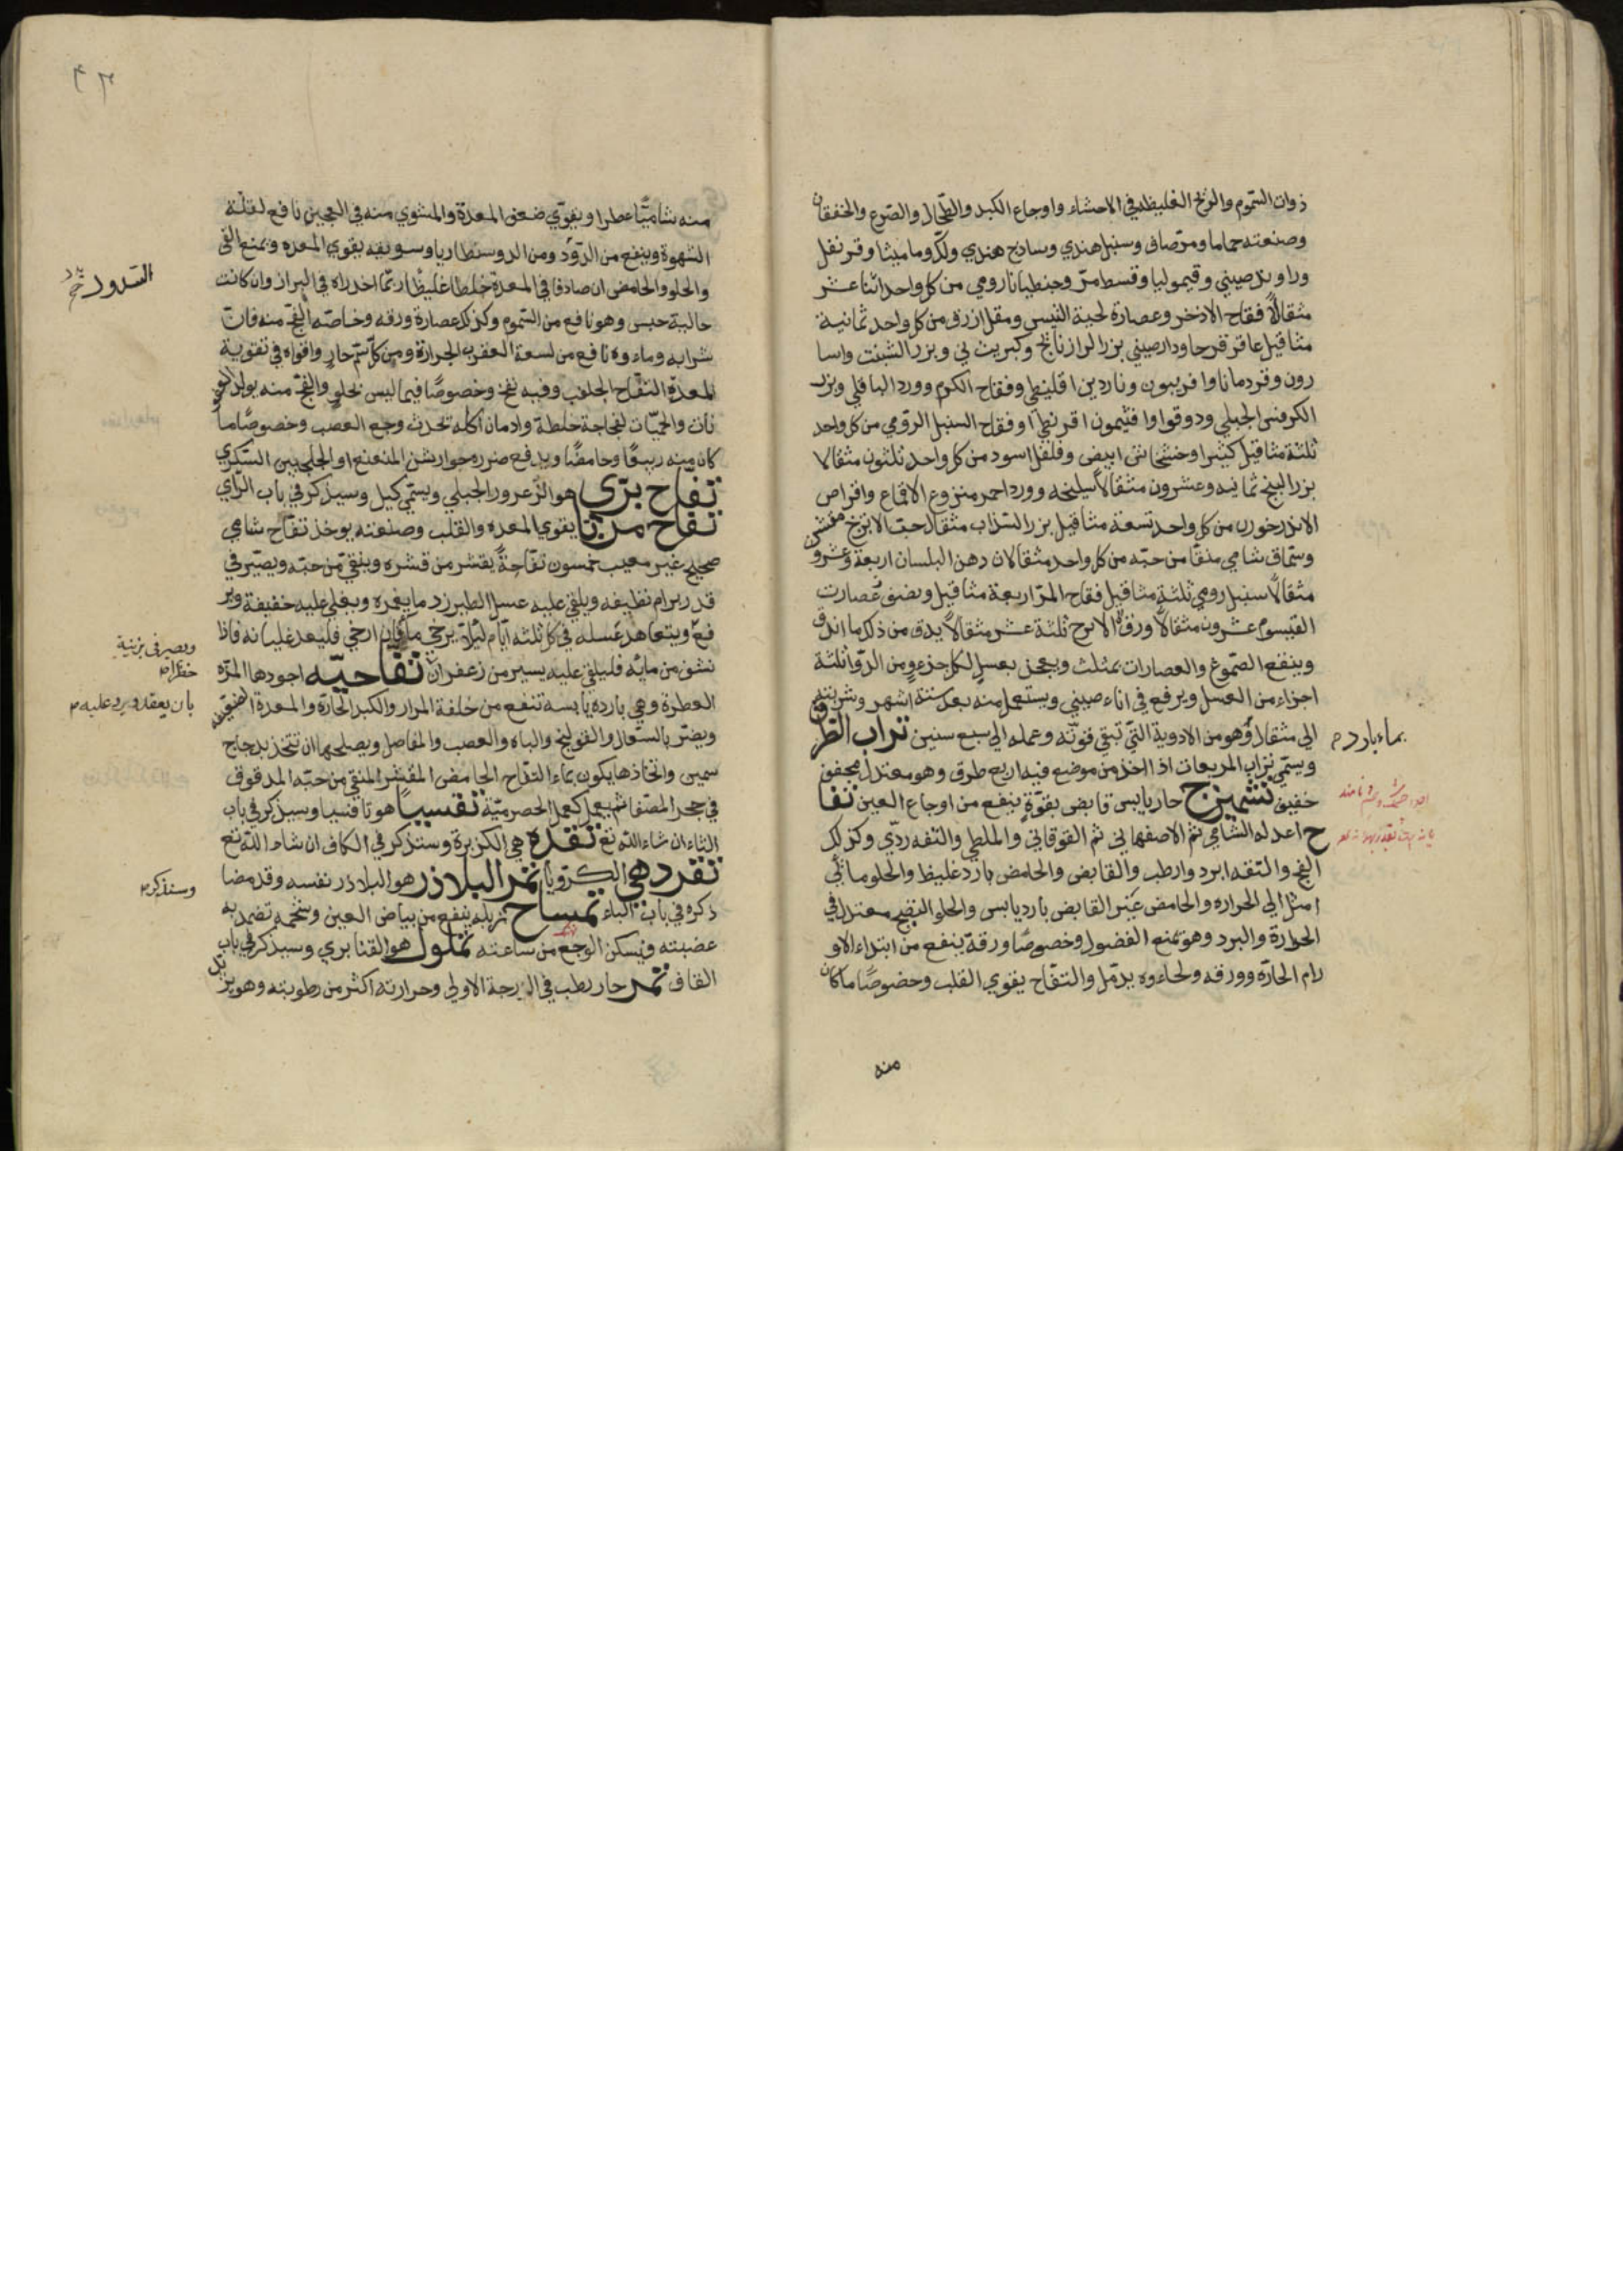 ذوات السموم والريح الغليظه في الاحشاء واوجاع الكبد والطحال والصرع والخفقان
وصنعته حماما ومر صاف وسنبل هندي وساذج هندي ولك وماميثا وقرنفل
وراوند صيني وقيموليا وقسط مر وجنطيانا رومي من كل واحد اثنا عشر
مثقالاً فقاح الاذخر وعصارة لحية التيس ومقل ازرق من كل واحد ثمانية
مثاقيل عاقر قرحا ودارصيني بزر الرازنانج وكبريت ني وبزر الشبت واسا
رون وقردمانا وافربيون وناردين اقليطي وفقاح الكرم وورد الباقلي وبزر
الكرفس الجبلي ودوقوا وافثيمون اقريطي وفقاح السنبل الرومي من كل واحد
ثلثة مثاقيل كثيرا وخشخاش ابيض وفلفل اسود من كل واحد ثلثون مثقالا
بزر البنج ثمانيه وعشرون مثقالاً سليخه وورد احمر منزوع الاقماع واقراص
الاندرخورن من كل واحد تسعة مثاقيل بزر السذاب مثقال حب الاترج مقشر
وسماق شامي منقا من حبه من كل واحد مثقالان دهن البلسان اربعة وعشرو
مثقالاً سنبل رومي ثلثة مثاقيل فقاح المر اربعة مثاقيل ونصف عصارت
القيسوم عشرون مثقالاً ورق الاترج ثلثة عشر مثقالاً يدق من ذلك ما اندق
وينقع الصموغ والعصارات بمثلث ويعجن بعسل لكل جزء من الدوا ثلثة
اجزاء من العسل ويرفع في اناء صيني ويستعمل منه بعد ستة اشهر وشربته
الي مثقال وهو من الادوية التي تبقي قوته وعمله الي سبع سنين تراب الطرق
بماء بارد م
ويسمي تراب المربعات اذا اخذ من موضع فيه اربع طرق وهو معتدل مجفف
خفيف تشميزج حار يابس قابض بقوة ينفع من اوجاع العين تفا
ح اعدله الشامي ثم الاصفهاني ثم القوقاني والملطي والتفه ردي وكذلك
الفج والتفه ابرد وارطب والقابض والحامض بارد غليظ والحلو مائي
امثل الي الحراره والحامض غير القابض بارد يابس والحلو النضيج معتدل في
الحرارة والبرد وهو يمنع الفضول وخصوصاً ورقه ينفع من ابتداء الاو
رام الحارة وورقه ولحاءوه يدمل والتفاح يقوي القلب وخصوصاً ما كان
منه
منه شامياً عطرا ويقوي ضعف المعدة والمشوي منه في العجين نافع لقلة
الشهوة وينفع من الدود ومن الدوسنطاريا وسويقه يقوي المعده ويمنع القي
والحلو والحامض ان صادفا في المعدة خلطا غليظا ربما احدراه في البراز وان كانت
خالية حبس وهو نافع من السموم وكذلك عصارة ورقه وخاصته الفج منه فان
شرابه وماءوه نافع من لسعة العقرب الجرارة ومن كل سم حار واقواه في تقوية
المعدة التفاح الجلوب وفيه نفخ وخصوصاً فيما ليس بحلو والفج منه يولد العفو
نات والحميات لفجاجة خلطة وادمان اكله تحدث وجع العصب وخصوصاً ما
كان منه ربيعاً وحامضاً ويدفع ضرره جوارشن المنعنع او الجلنجبين السكري
تفاح بري هو الزعرور الجبلي ويسمي كيل وسيذكر في باب الزاي
تفاح مربا يقوي المعده والقلب وصنعته يوخذ تفاح شامي
صحيح غير معيب خمسون تفاحة يقشر من قشره وينقي من حبه ويصير في
قدر برام نظيفه ويلقي عليه عسل الطبرزد ما يغمره ويغلي غليه خفيفة وير
فع ويتعاهد غسله في كل ثلثه ايام ليلا يرخي ماء فان ارخي فليعد غليانه فاذا
ويصير في برنية خضراء
نشف من مائه فليلقي عليه يسير من زعفران تفاحيه اجودها المزه
بان يعقد ويرد عليه م
العطرة وهي بارده يابسه تنفع من خلفة المرار والكبد الحارة والمعدة الضعيفه
ويضر بالسعال والقولنج والباه والعصب والمفاصل ويصلحها ان تتخذ بدجاج
سمين واتخاذها يكون بماء التفاح الحامض المقشر المنقي من حبه المدقوق
في حجر المصفا ثم يعمل كعمل الحصرمية تفسيا هو تافسيا وسيذكر في باب
الثاء ان شاء الله تع تقده هي الكزبرة وستذكر في الكاف ان شاء الله تع
تقرد هي الكرويا تمر البلاذر هو البلاذر نفسه وقد مضا
وستذكر م
ذكره في باب الباء تمساح زبله ينفع من بياض العين وشحمه تضمد به
عضته فيسكن الوجع من ساعته تملول هو القنابري وسيذكر في باب
القاف تمر حار رطب في الدرجة الاولي وحرارته اكثر من رطوبته وهو يز